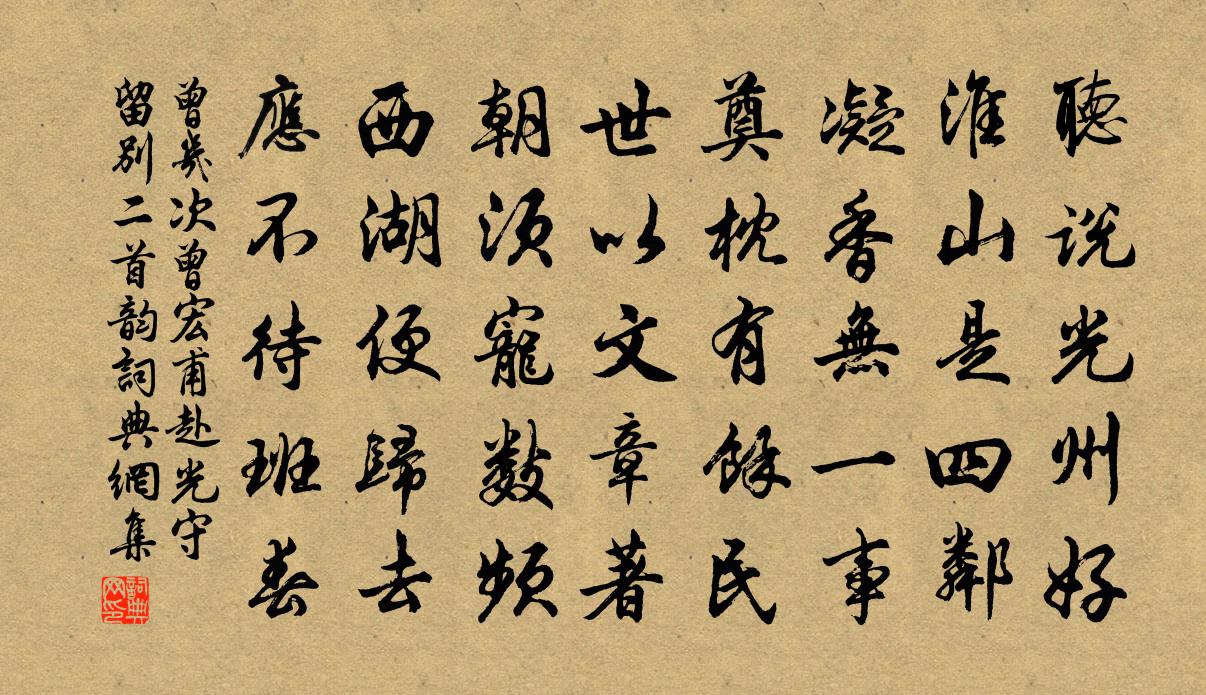 聽說光州好
淮山是四鄰
凝香無一事
奠枕有餘民
世以文章著
朝須寵數頻
西湖便歸去
應不待班春
曾幾次曾宏甫赴光守
留別二首韵詞典網集
詞典網印